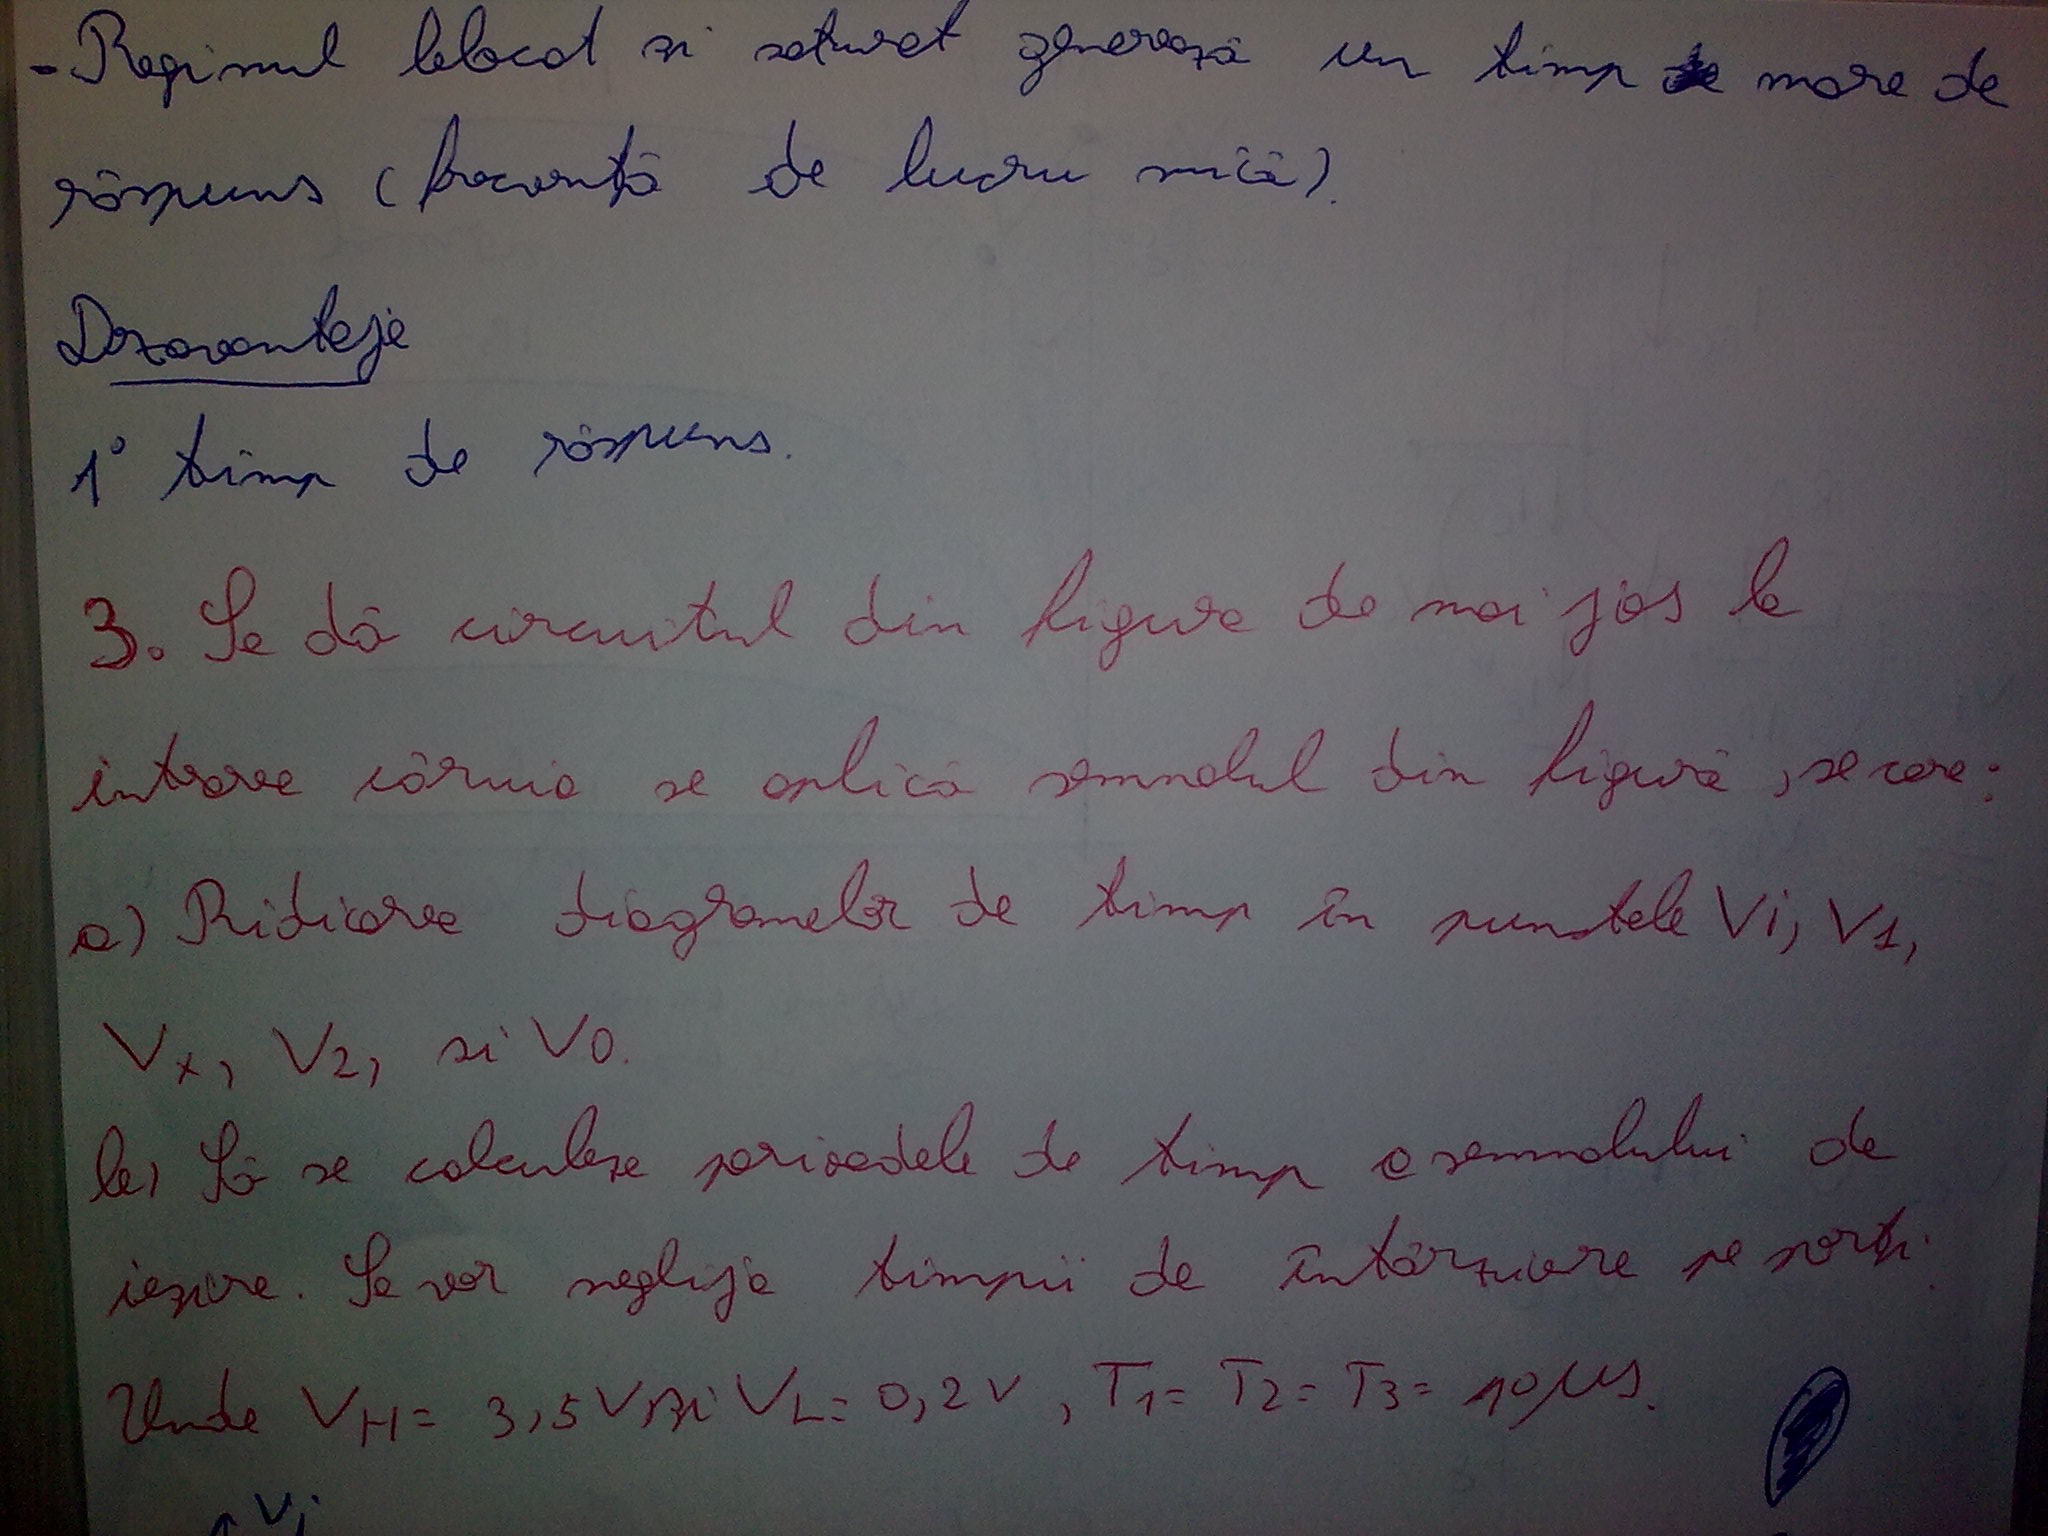 - Regimul blocat si saturat generează un timp mare de
răspuns (frecvență de lucru mică).
Dezavantaje
1° timp de răspuns.
3. Se dă circuitul din figura de mai jos la
intrarea căruia se aplică semnalul din figură, se cere:
a) Ridicarea diagramelor de timp în punctele Vi, V1,
Vx, V2, si V0.
b) Să se calculeze perioadele de timp a semnalului de
ieșire. Se vor neglija timpii de întârziere pe porti.
Unde VH = 3,5V si VL = 0,2V, T1 = T2 = T3 = 10 μs.
Vi